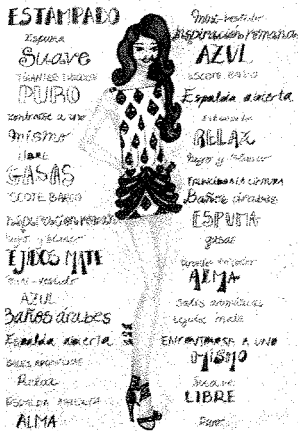 ESTAMPADO
Espuma
Suave
TIRANTES
PURO
Encontrarse a uno
Mismo
LIBRE
GASAS
ESCOTE BARCO
INSPIRACIÓN ROMANA
negro y blanco
TEJIDOS MATE
mini-vestido
AZUL
Baños árabes
Espalda abierta
SALES AROMÁTICAS
Relax
ALMA
Mini-vestido
Inspiración romana
AZUL
ESCOTE BARCO
Espalda abierta
RELAX
Negro y blanco
Baños árabes
ESPUMA
gasas
ALMA
Sales aromáticas
tejidos mate
ENCONTRARSE A UNO
MISMO
Suave
LIBRE
Puro